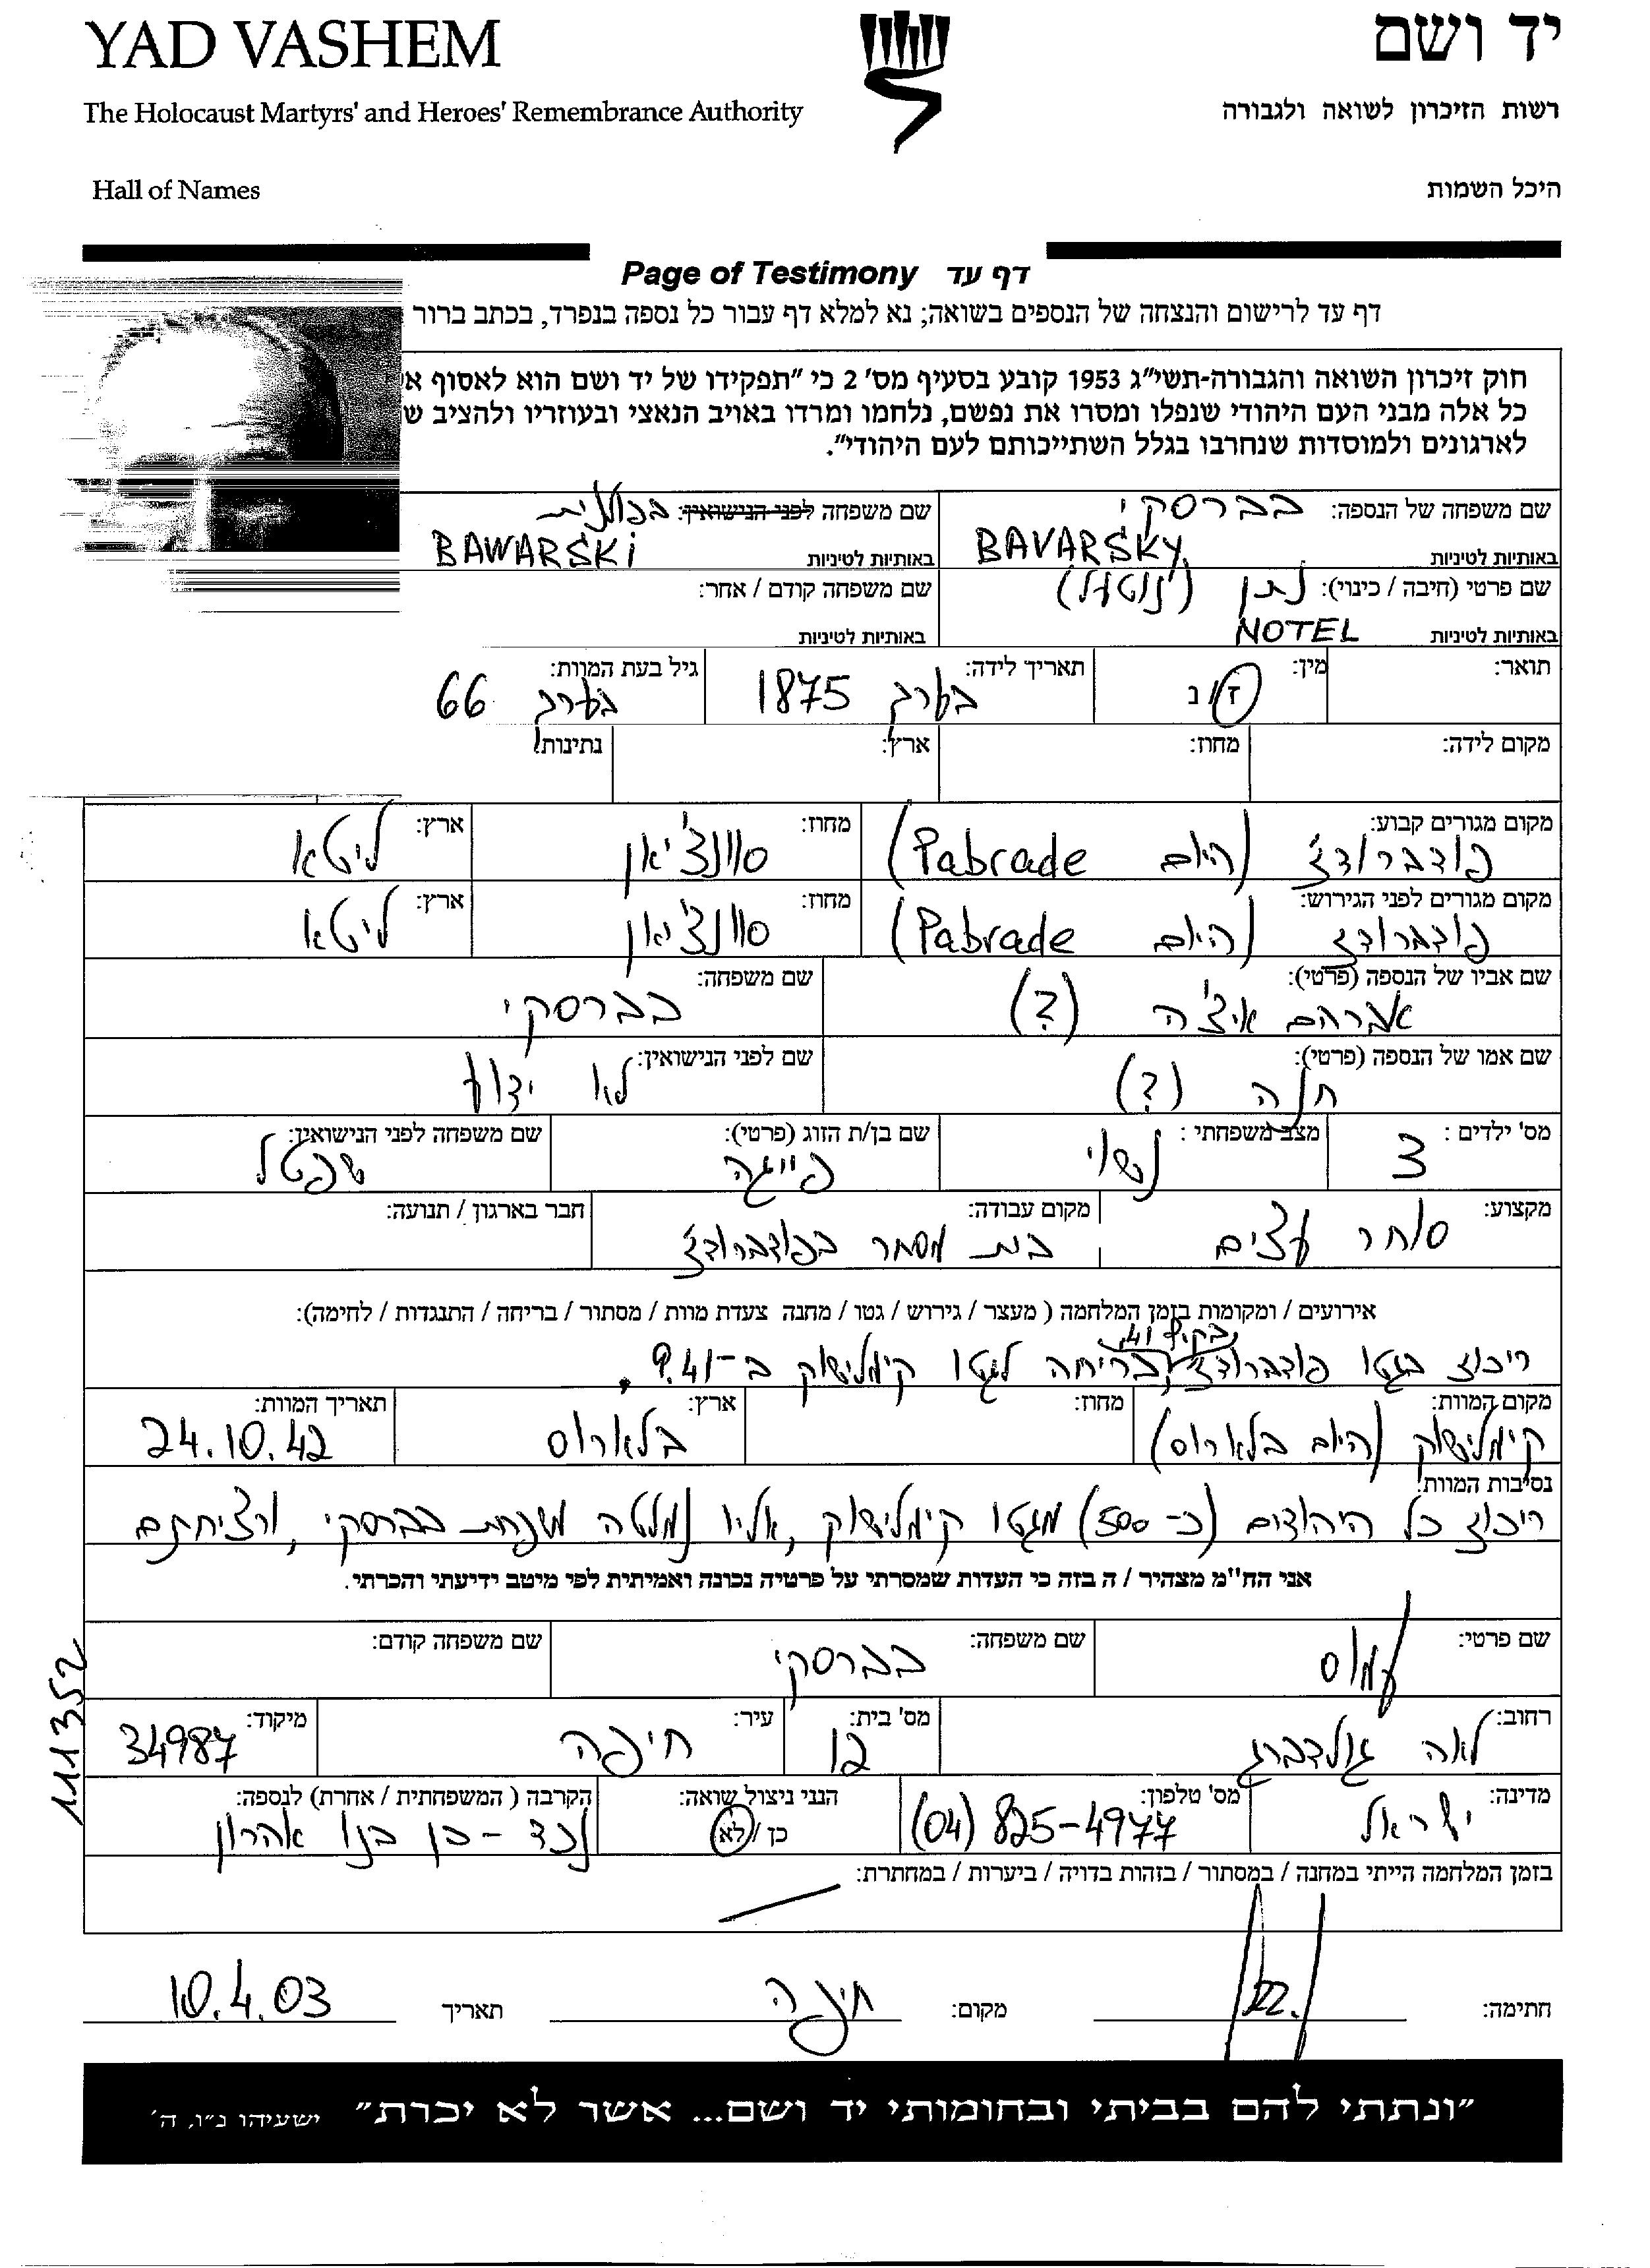 YAD VASHEM
יד ושם
The Holocaust Martyrs' and Heroes' Remembrance Authority
רשות הזיכרון לשואה ולגבורה
Hall of Names
היכל השמות
Page of Testimony דף עד
דף עד לרישום והנצחה של הנספים בשואה; נא למלא דף עבור כל נספה בנפרד, בכתב ברור
חוק זיכרון השואה והגבורה-תשי"ג 1953 קובע בסעיף מס' 2 כי "תפקידו של יד ושם הוא לאסוף א
כל אלה מבני העם היהודי שנפלו ומסרו את נפשם, נלחמו ומרדו באויב הנאצי ובעוזריו ולהציב ש
לארגונים ולמוסדות שנחרבו בגלל השתייכותם לעם היהודי".
שם משפחה של הנספה: בברסקי שם משפחה לפני הנישואין: בפולנית
באותיות לטיניות BAVARSKY באותיות לטיניות BAWARSKI
שם פרטי (חיבה / כינוי): נתן (נוטל) שם משפחה קודם / אחר:
באותיות לטיניות NOTEL באותיות לטיניות
תואר: מין: ז / נ תאריך לידה: בערך 1875 גיל בעת המוות: בערך 66
מקום לידה: מחוז: ארץ: נתינות:
מקום מגורים קבוע: פודברודז' (היום Pabrade) מחוז: סוונצ'יאן ארץ: ליטא
מקום מגורים לפני הגירוש: פודברודז' (היום Pabrade) מחוז: סוונצ'יאן ארץ: ליטא
שם אביו של הנספה (פרטי): אברהם איצ'ה (?) שם משפחה: בברסקי
שם אמו של הנספה (פרטי): חנה (?) שם לפני הנישואין: לא ידוע
מס' ילדים: 3 מצב משפחתי: נשוי שם בן/ת הזוג (פרטי): פייגה שם משפחה לפני הנישואין: שפטל
מקצוע: סוחר עצים מקום עבודה: בית מסחר בפודברודז' חבר בארגון / תנועה:
אירועים / ומקומות בזמן המלחמה ( מעצר / גירוש / גטו / מחנה צעדת מוות / מסתור / בריחה / התנגדות / לחימה):
בקיץ 41
ריכוז בגטו פודברודז', בריחה לגטו קימלישוק ב-9.41
מקום המוות: קימלישוק (היום בלארוס) מחוז: ארץ: בלארוס תאריך המוות: 24.10.42
נסיבות המוות:
ריכוז כל היהודים (כ-500) מגטו קימלישוק, אליו נמלטה משפחת בברסקי, ורציחתם
אני הח"מ מצהיר / ה בזה כי העדות שמסרתי על פרטיה נכונה ואמיתית לפי מיטב ידיעתי והכרתי.
שם פרטי: עמוס שם משפחה: בברסקי שם משפחה קודם:
רחוב: לאה גולדברג מס' בית: 12 עיר: חיפה מיקוד: 34987
מדינה: ישראל מס' טלפון: (04) 825-4977 הנני ניצול שואה: כן / לא הקרבה ( המשפחתית / אחרת) לנספה: נכד - בן בנו אהרון
בזמן המלחמה הייתי במחנה / במסתור / בזהות בדויה / ביערות / במחתרת:
חתימה: מקום: חיפה תאריך 10.4.03
111352
"ונתתי להם בביתי ובחומותי יד ושם... אשר לא יכרת" ישעיהו נ"ו, ה'